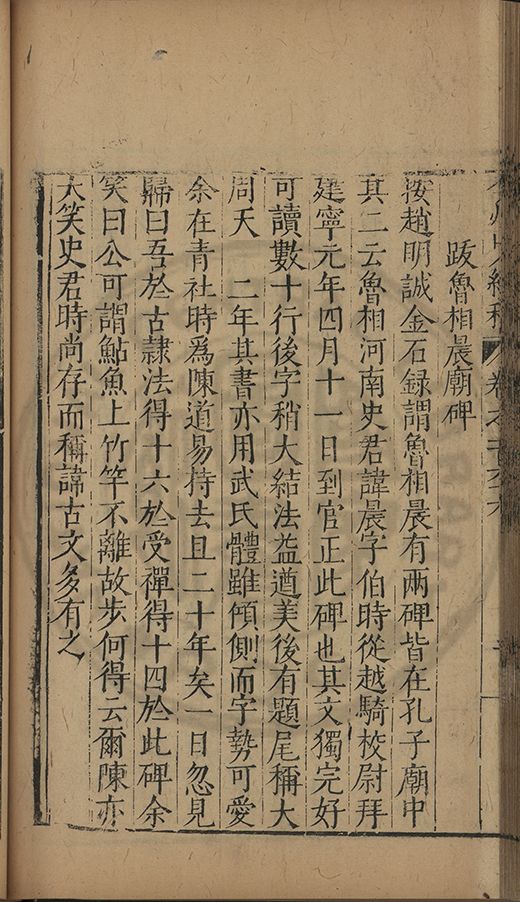 跋魯相晨廟碑
按趙明誠金石録謂魯相晨有兩碑皆在孔子廟中
其二云魯相河南史君諱晨字伯時從越騎校尉拜
建寧元年四月十一日到官正此碑也其文獨完好
可讀數十行後字稍大結法益遒美後有題尾稱大
周天　二年其書亦用武氏體雖傾側而字勢可愛
余在青社時爲陳道易持去且二十年矣一日忽見
歸曰吾於古隷法得十六於受禪得十四於此碑余
笑曰公可謂鮎魚上竹竿不離故步何得云爾陳亦
大笑史君時尚存而稱諱古文多有之